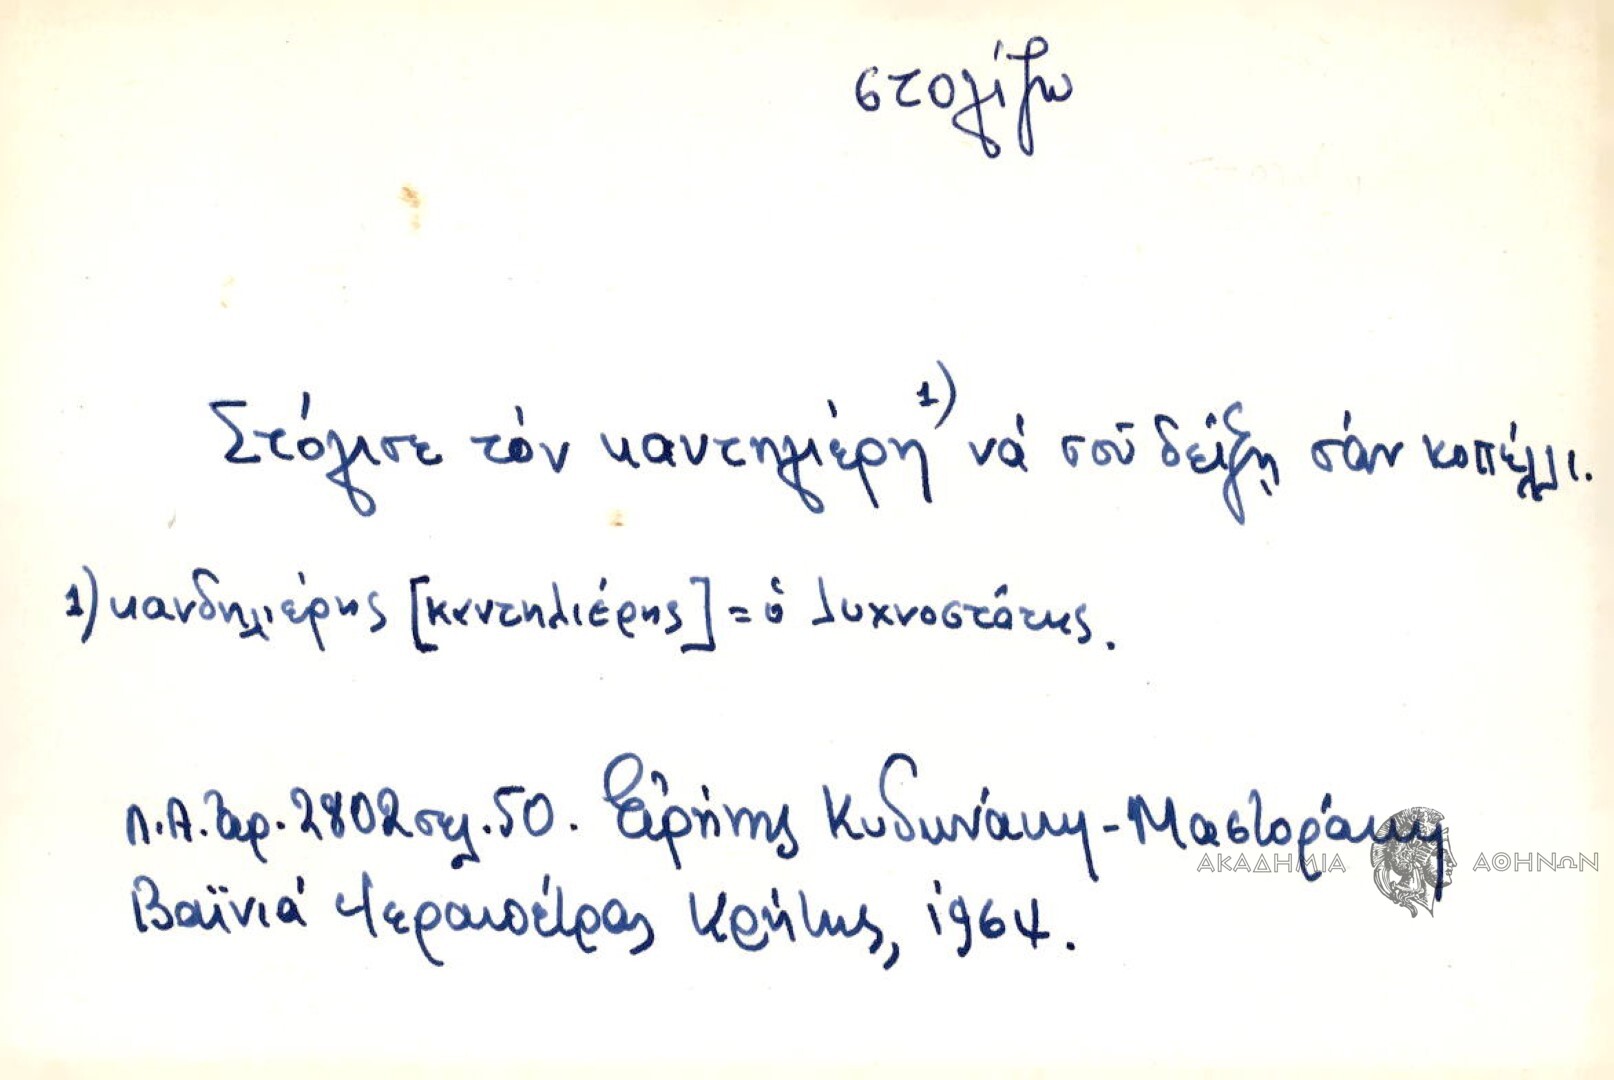 στολίζω
Στόλισε τόν καντηλιέρη¹⁾ νά σοῦ δείξῃ σάν κοπέλλι.
1) κανδηλιέρης [καντηλιέρης] = ὁ λυχνοστάτης.
Λ.Α. ἀρ. 2802 σελ. 50. Εἰρήνης Κυδωνάκη - Μαστοράκη
Βαϊνιά Ἱεραπέτρας Κρήτης, 1964.
ΑΚΑΔΗΜΙΑ ΑΘΗΝΩΝ